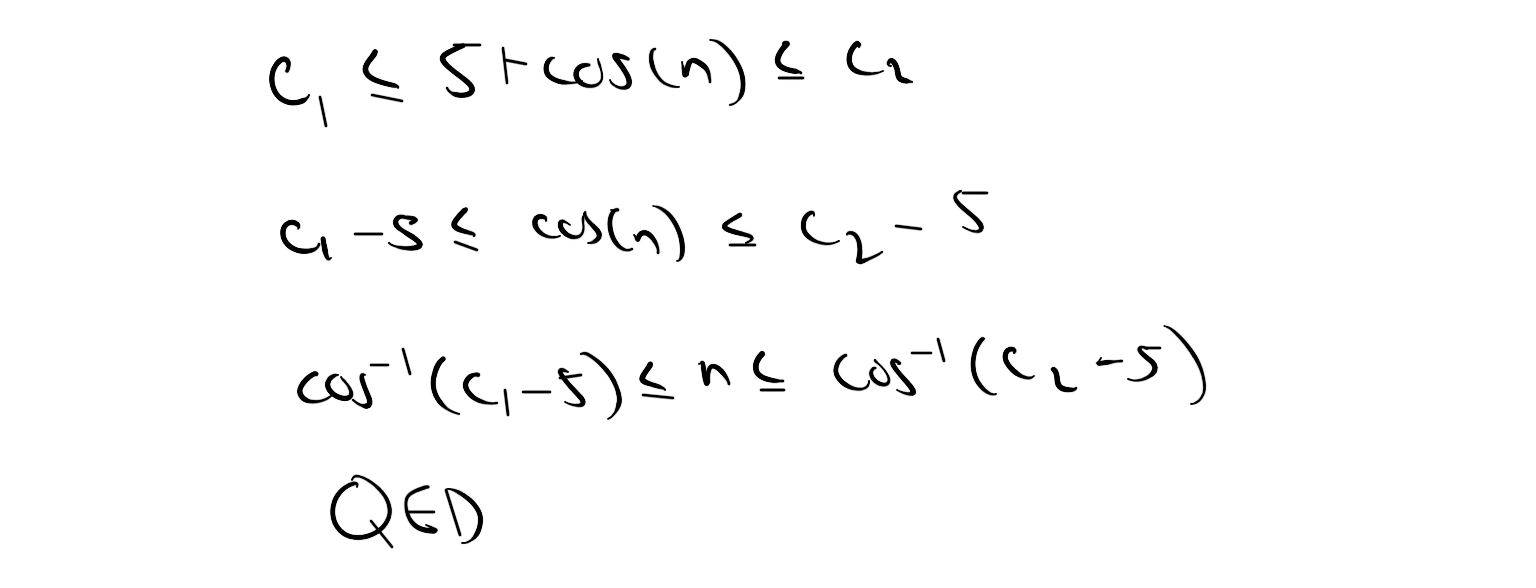 c₁ ≤ 5+cos(n) ≤ c₂
c₁ -5 ≤ cos(n) ≤ c₂ - 5
cos⁻¹(c₁-5) ≤ n ≤ cos⁻¹(c₂ -5)
QED